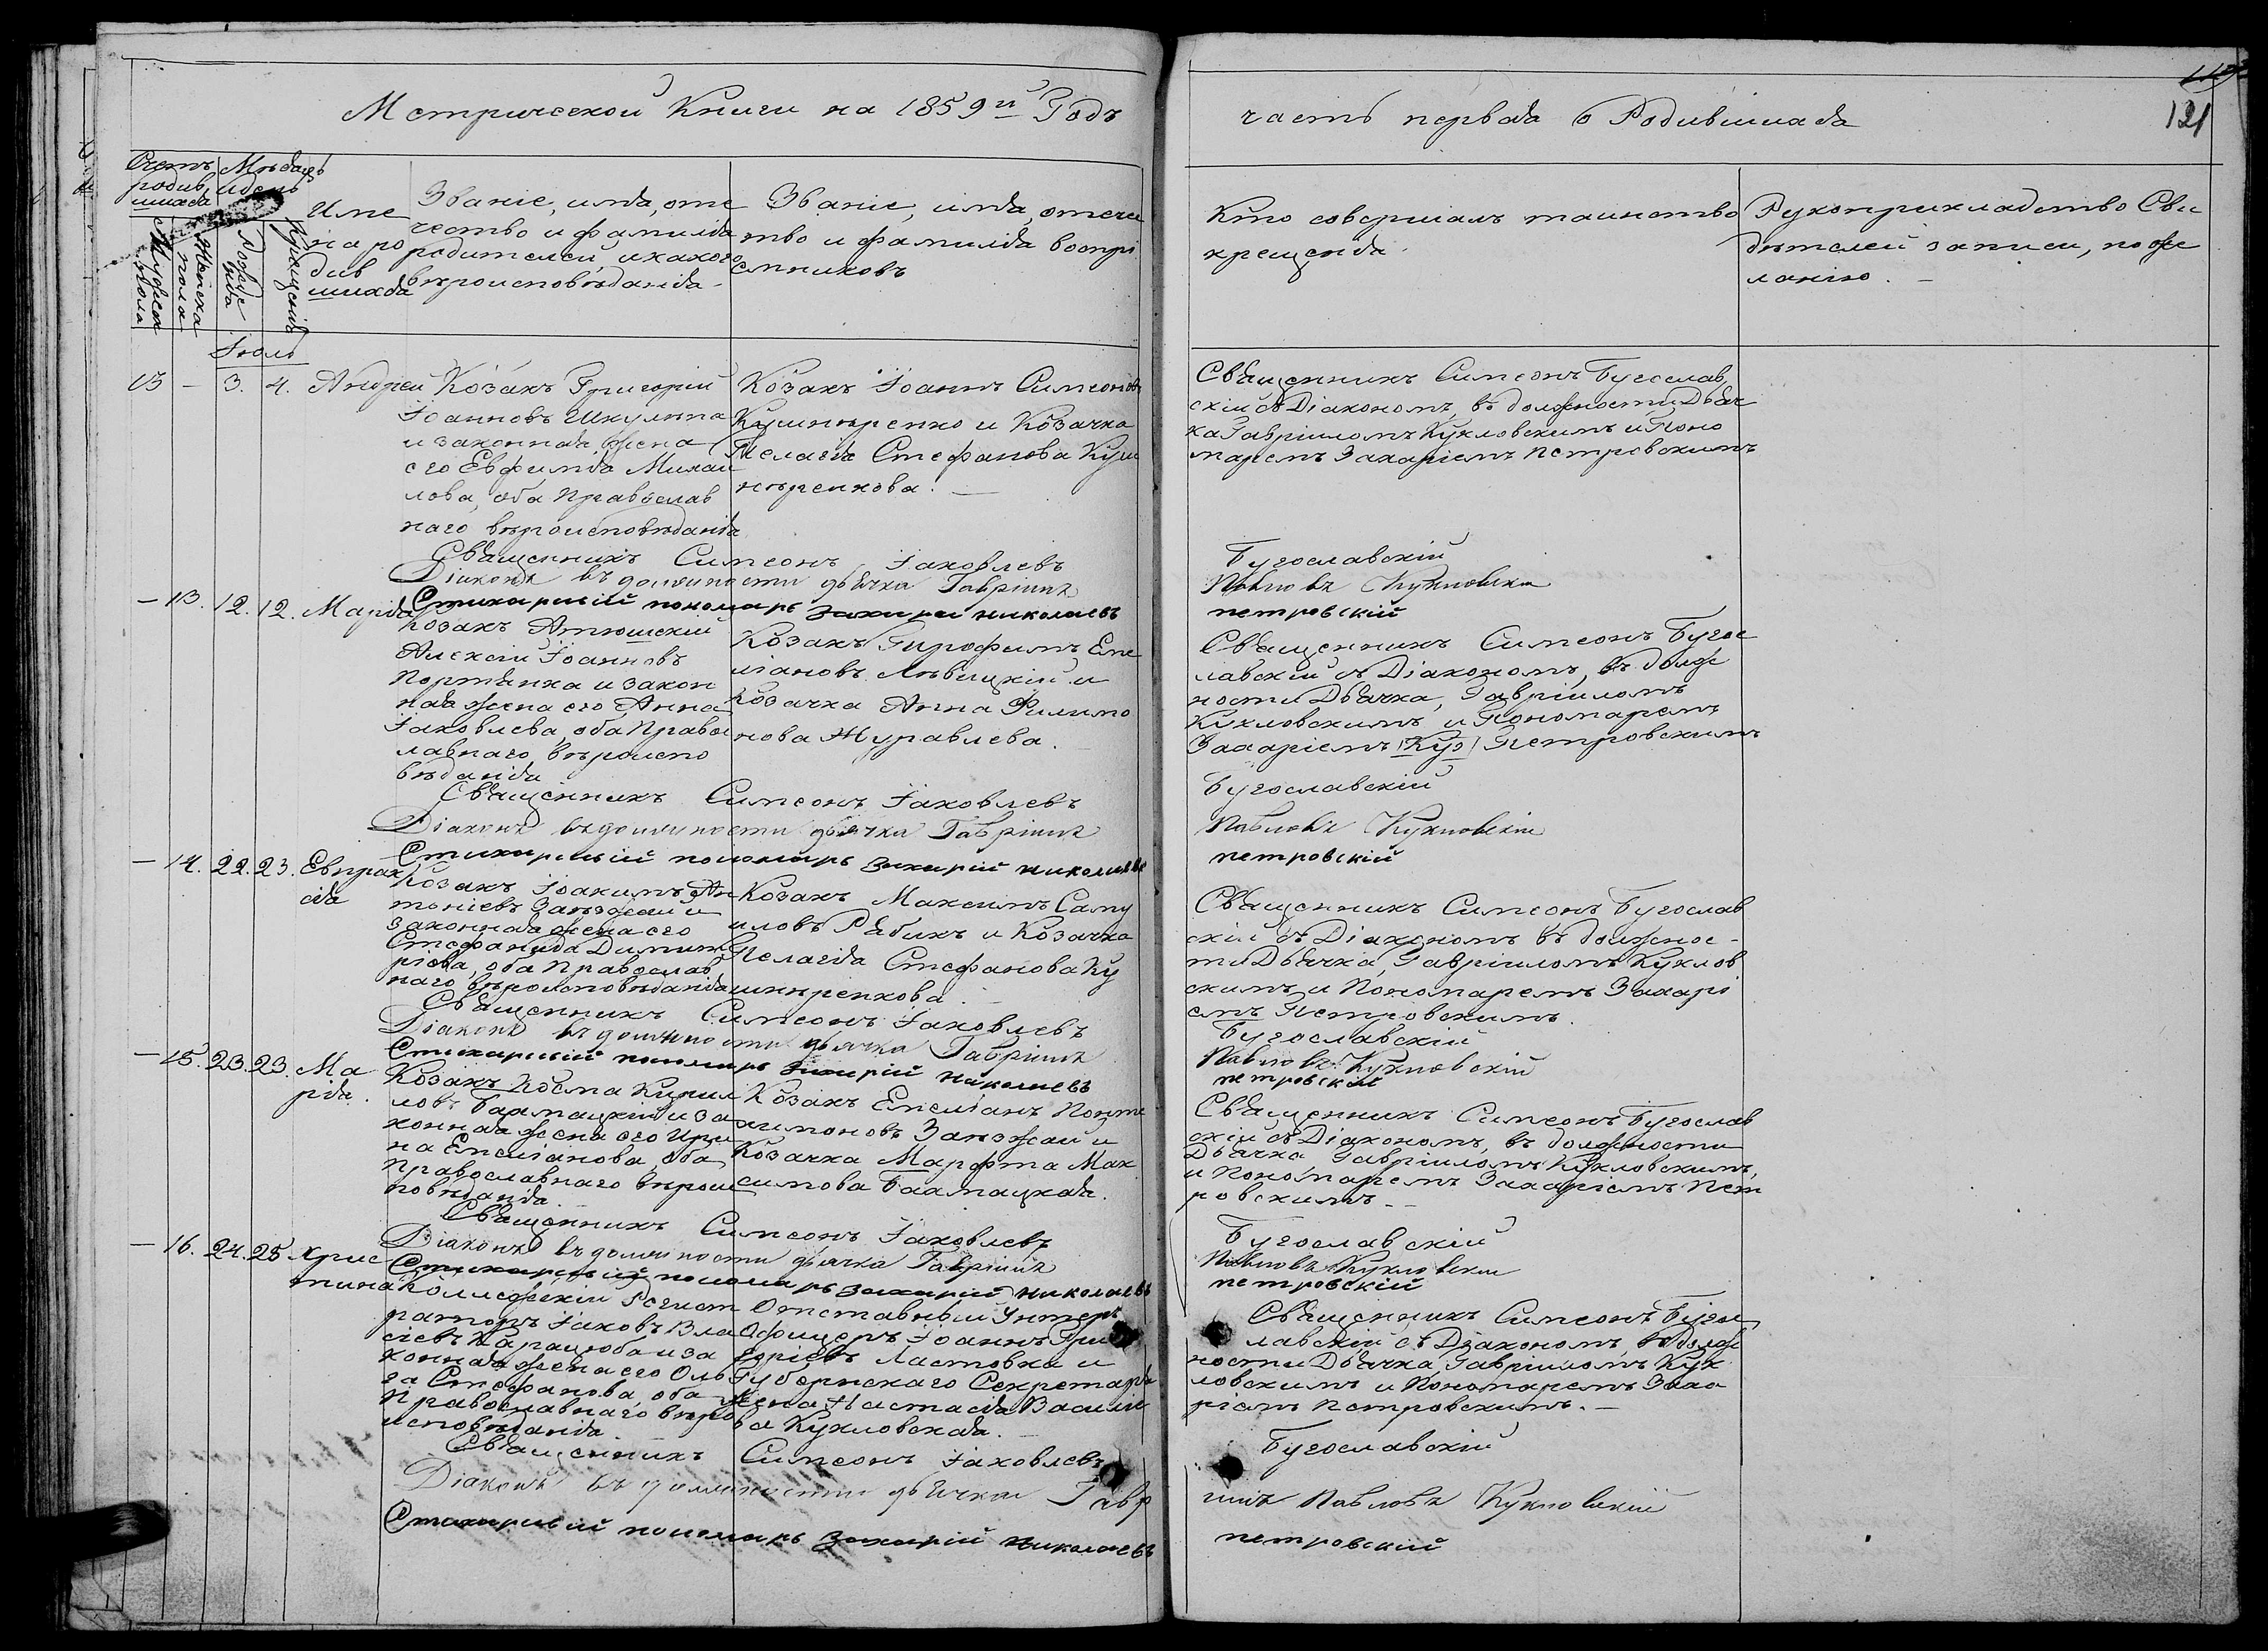 Метрической Книги на 1859й Годъ
часть первая о Родившихся
119
121
Счетъ родившихся
Мѣсяцъ и день
Мужеска пола
Женска пола
Рожденія
Крещенія
Имена родившихся
Званіе, имя, оте
чество и фамилія
родителей и какого
вѣроисповѣданія
Званіе, имя, отече
тво и фамилія воспрі
емниковъ
Кто совершалъ таинство
крещенія
Рукоприкладство Сви
дѣтелей записи, по же
ланію. —
Іюль
13 — 3. 4. Андрей
Козакъ Григорій
Іоанновъ Шкулипа
и законная жена
его Евфимія Михаи
лова, оба Православ
наго вѣроисповѣданія
Козакъ Іоаннъ Симеоновъ
Кушнѣренко и Козачка
Пелагія Стефанова Куш
нѣренкова. —
Священникъ Симеонъ Бугослав
скій съ Діакономъ, въ должности Дьяч
ка Гавріиломъ Кухловскимъ и Поно
маремъ Захаріемъ Петровскимъ
Священникъ Симеонъ Іаковлевъ Бугославскій
Діаконъ въ должности дьячка Гавріилъ Павловъ Кухловскій
Стихарный пономарь Захарій Николаевъ Петровскій
— 13. 12. 12. Марія
Козакъ Атюшскій
Алексій Іоанновъ
Портянка и закон
ная жена его Анна
Іаковлева, оба Правос
лавнаго вѣроиспо
вѣданія
Козакъ Еме
ліановъ Лѣвицкій и
Козачка Анна Филимо
нова Журавлева.
Священникъ Симеонъ Бугос
лавскій съ Діакономъ, въ долж
ности Дьячка, Гавріиломъ
Кухловскимъ и Пономаремъ
Захаріемъ (Кух) Петровскимъ
Священникъ Симеонъ Іаковлевъ Бугославскій
Діаконъ въ должности дьячка Гавріилъ Павловъ Кухловскій
Стихарный пономарь Захарій Николаевъ Петровскій
— 14. 22. 23. Евпрак
сія
Козакъ Іоакимъ Ан
тоніевъ Занзжай и
законная жена его
Стефанида Димит
ріева, оба Православ
наго вѣроисповѣданія
Козакъ Максимъ Саму
иловъ Рябикъ и Козачка
Пелагія Стефанова Ку
шнѣренкова. —
Священникъ Симеонъ Бугослав
скій съ Діакономъ въ должнос-
ти Дьячка, Гавріиломъ Кухлов
скимъ и Пономаремъ Захарі
емъ Петровскимъ.
Священникъ Симеонъ Іаковлевъ Бугославскій
Діаконъ въ должности дьячка Гавріилъ Павловъ Кухловскій
Стихарный пономарь Захарій Николаевъ Петровскій
— 15. 23. 23. Ма
рія.
Козакъ Косма Кирил
ловъ Бахмацкій и за
конная жена его Ири
на Емеліанова, оба
Православнаго вѣроис
повѣданія
Козакъ Емеліанъ Панте
лимоновъ Занзжай и
Козачка Марфта Мак
симова Бахмацкая.
Священникъ Симеонъ Бугослав
скій съ Діакономъ, въ должности
Дьячка Гавріиломъ Кухловскимъ,
и Пономаремъ Захаріемъ Пет
ровскимъ. —
Священникъ Симеонъ Іаковлевъ Бугославскій
Діаконъ въ должности дьячка Гавріилъ Павловъ Кухловскій
Стихарный пономарь Захарій Николаевъ Петровскій
— 16. 24. 25 Хрис
тина
Коллежскій Регист
раторъ Іаковъ Вла
сіевъ Карацюба и за
конная жена его Оль
га Стефанова, оба
Православнаго вѣро
исповѣданія
Отставный Унтеръ
Офицеръ Іоаннъ Гри
горіевъ Ластовка и
Губернскаго Секретаря
жена Настасія Василіе
ва Кухловская. —
Священникъ Симеонъ Бугос
лавскій съ Діакономъ, въ долж
ности Дьячка, Гавріиломъ Кух
ловскимъ и Пономаремъ Заха
ріемъ Петровскимъ. —
Священникъ Симеонъ Іаковлевъ Бугославскій
Діаконъ въ должности дьячка Гавріилъ Павловъ Кухловскій
Стихарный пономарь Захарій Николаевъ Петровскій